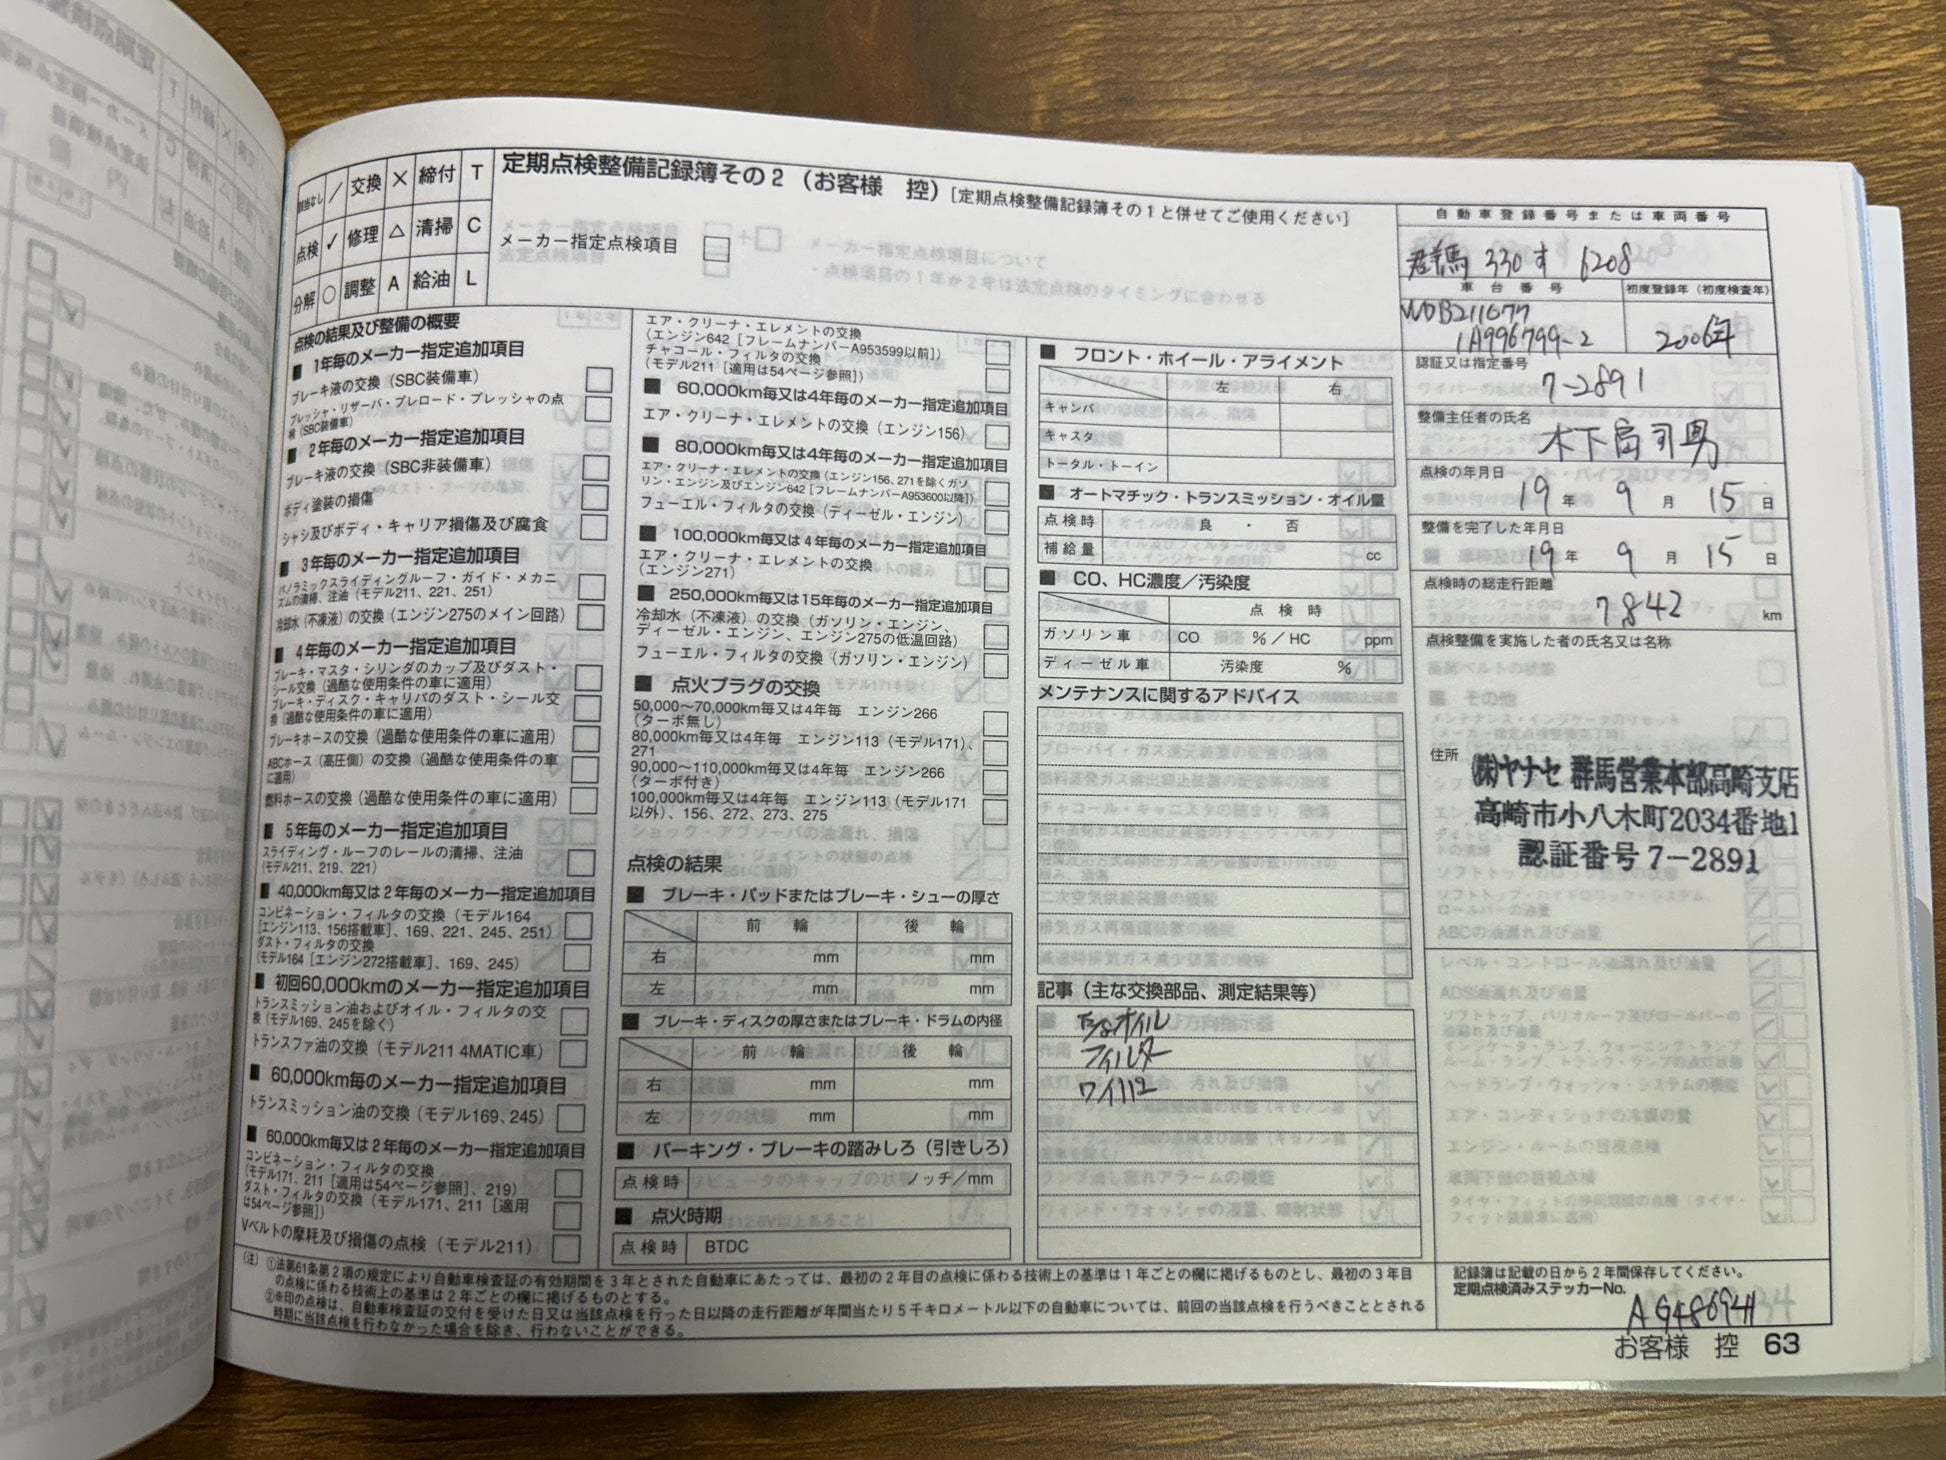 該当なし ／ 交換 × 締付 T
点検 ✓ 修理 △ 清掃 C
分解 ○ 調整 A 給油 L
定期点検整備記録簿その2（お客様 控）［定期点検整備記録簿その1と併せてご使用ください］
メーカー指定点検項目
点検の結果及び整備の概要
■ 1年毎のメーカー指定追加項目
ブレーキ液の交換（SBC装備車）
プレッシャ・リザーバ・プレロード・プレッシャの点
検（SBC装備車）
■ 2年毎のメーカー指定追加項目
ブレーキ液の交換（SBC非装備車）
ボディ塗装の損傷
シャシ及びボディ・キャリア損傷及び腐食
■ 3年毎のメーカー指定追加項目
パノラミックスライディングルーフ・ガイド・メカニ
ズムの清掃、注油（モデル211、221、251）
冷却水（不凍液）の交換（エンジン275のメイン回路）
■ 4年毎のメーカー指定追加項目
ブレーキ・マスタ・シリンダのカップ及びダスト・
シール交換（過酷な使用条件の車に適用）
ブレーキ・ディスク・キャリパのダスト・シール交
換（過酷な使用条件の車に適用）
ブレーキホースの交換（過酷な使用条件の車に適用）
ABCホース（高圧側）の交換（過酷な使用条件の車
に適用）
燃料ホースの交換（過酷な使用条件の車に適用）
■ 5年毎のメーカー指定追加項目
スライディング・ルーフのレールの清掃、注油
（モデル211、219、221）
■ 40,000km毎又は2年毎のメーカー指定追加項目
コンビネーション・フィルタの交換（モデル164
［エンジン113、156搭載車］、169、221、245、251）
ダスト・フィルタの交換
（モデル164［エンジン272搭載車］、169、245）
■ 初回60,000kmのメーカー指定追加項目
トランスミッション油およびオイル・フィルタの交
換（モデル169、245を除く）
トランスファ油の交換（モデル211 4MATIC車）
■ 60,000km毎のメーカー指定追加項目
トランスミッション油の交換（モデル169、245）
■ 60,000km毎又は2年毎のメーカー指定追加項目
コンビネーション・フィルタの交換
（モデル171、211［適用は54ページ参照］、219）
ダスト・フィルタの交換（モデル171、211［適用
は54ページ参照］）
Vベルトの摩耗及び損傷の点検（モデル211）
エア・クリーナ・エレメントの交換
（エンジン642［フレームナンバーA953599以前］）
チャコール・フィルタの交換
（モデル211［適用は54ページ参照］）
■ 60,000km毎又は4年毎のメーカー指定追加項目
エア・クリーナ・エレメントの交換（エンジン156）
■ 80,000km毎又は4年毎のメーカー指定追加項目
エア・クリーナ・エレメントの交換（エンジン156、271を除くガソ
リン・エンジン及びエンジン642［フレームナンバーA953600以降］）
フューエル・フィルタの交換（ディーゼル・エンジン）
■ 100,000km毎又は4年毎のメーカー指定追加項目
エア・クリーナ・エレメントの交換
（エンジン271）
■ 250,000km毎又は15年毎のメーカー指定追加項目
冷却水（不凍液）の交換（ガソリン・エンジン、
ディーゼル・エンジン、エンジン275の低温回路）
フューエル・フィルタの交換（ガソリン・エンジン）
■ 点火プラグの交換
50,000～70,000km毎又は4年毎 エンジン266
（ターボ無し）
80,000km毎又は4年毎 エンジン113（モデル171）、
271
90,000～110,000km毎又は4年毎 エンジン266
（ターボ付き）
100,000km毎又は4年毎 エンジン113（モデル171
以外）、156、272、273、275
点検の結果
■ ブレーキ・パッドまたはブレーキ・シューの厚さ
前 輪 後 輪
右 mm mm
左 mm mm
■ ブレーキ・ディスクの厚さまたはブレーキ・ドラムの内径
前 輪 後 輪
右 mm mm
左 mm mm
■ パーキング・ブレーキの踏みしろ（引きしろ）
点検時 ノッチ／mm
■ 点火時期
点検時 BTDC
■ フロント・ホイール・アライメント
左 右
キャンバ
キャスタ
トータル・トーイン
■ オートマチック・トランスミッション・オイル量
点検時 良 ・ 否
補給量 cc
■ CO、HC濃度／汚染度
点検時
ガソリン車 CO %／HC ppm
ディーゼル車 汚染度 %
メンテナンスに関するアドバイス
記事（主な交換部品、測定結果等）
オイル
フィルター
ワイパー
自動車登録番号または車両番号
群馬 330 す 6208
車台番号 初度登録年（初度検査年）
WDB211077
1A996799-2 2006年
認証又は指定番号
7-2891
整備主任者の氏名
木下
点検の年月日
19年 9月 15日
整備を完了した年月日
19年 9月 15日
点検時の総走行距離
7,842 km
点検整備を実施した者の氏名又は名称
住所
㈱ヤナセ 群馬営業本部高崎支店
高崎市小八木町2034番地1
認証番号 7-2891
（注）①法第61条第2項の規定により自動車検査証の有効期間を3年とされた自動車にあたっては、最初の2年目の点検に係わる技術上の基準は1年ごとの欄に掲げるものとし、最初の3年目
の点検に係わる技術上の基準は2年ごとの欄に掲げるものとする。
②※印の点検は、自動車検査証の交付を受けた日又は当該点検を行った日以降の走行距離が年間当たり5千キロメートル以下の自動車については、前回の当該点検を行うべきこととされる
時期に当該点検を行わなかった場合を除き、行わないことができる。
記録簿は記載の日から2年間保存してください。
定期点検済みステッカーNo.
お客様 控 63